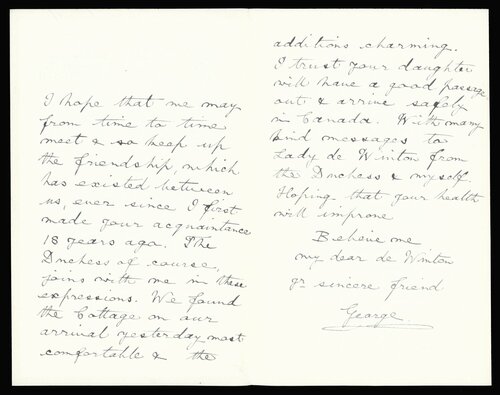 I hope that we may
from time to time
meet & so keep up
the friendship, which
has existed between
us, ever since I first
made your acquaintance
18 years ago. The
Duchess of course,
joins with me in these
expressions. We found
the Cottage on our
arrival yesterday most
comfortable & the
additions charming.
I trust your daughter
will have a good passage
out & arrive safely
in Canada. With many
kind messages to
Lady de Winton from
the Duchess & myself
Hoping that your health
will improve
Believe me
my dear de Winton
yr sincere friend
George